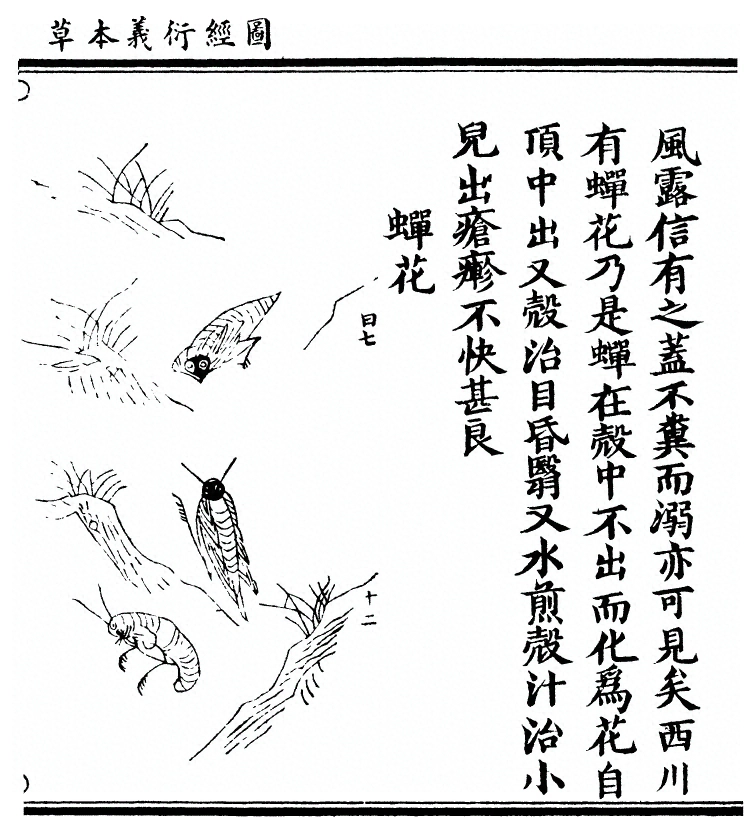 圖經衍義本草
風露信有之蓋不糞而溺亦可見矣西川
有蟬花乃是蟬在殼中不出而化爲花自
頂中出又殼治目昏翳又水煎殼汁治小
兒出瘡疹不快甚良
蟬花
曰七
十二